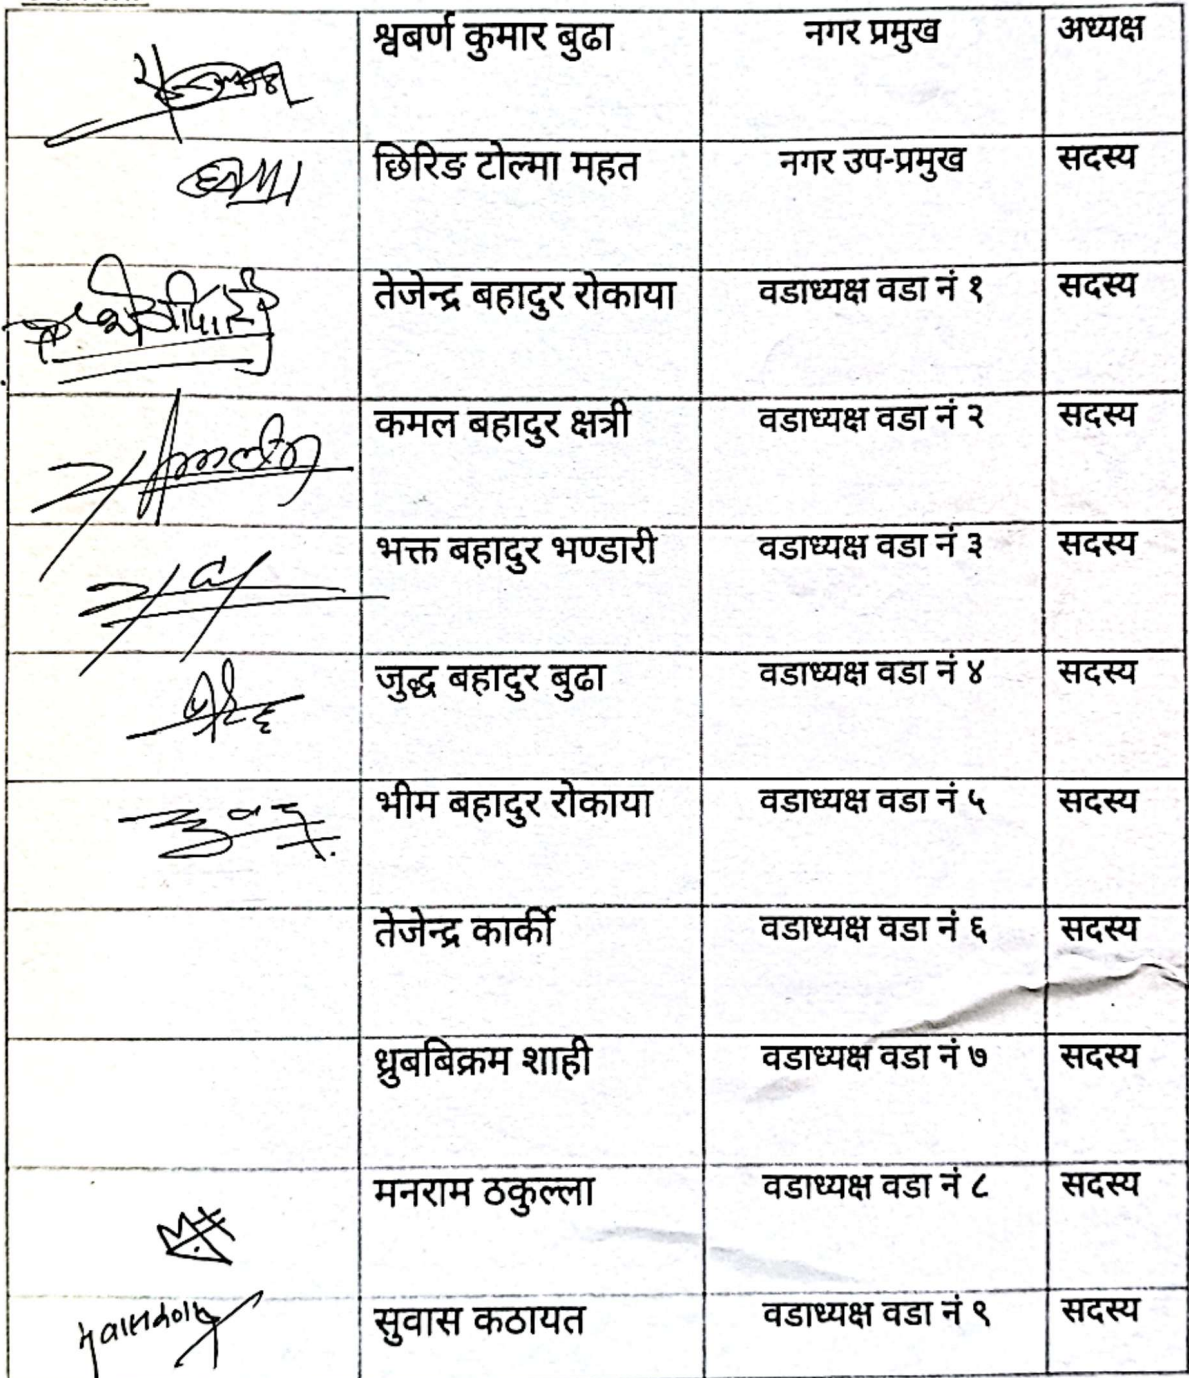 श्वबर्ण कुमार बुढा नगर प्रमुख अध्यक्ष
छिरिङ टोल्मा महत नगर उप-प्रमुख सदस्य
तेजेन्द्र बहादुर रोकाया वडाध्यक्ष वडा नं १ सदस्य
कमल बहादुर क्षत्री वडाध्यक्ष वडा नं २ सदस्य
भक्त बहादुर भण्डारी वडाध्यक्ष वडा नं ३ सदस्य
जुद्ध बहादुर बुढा वडाध्यक्ष वडा नं ४ सदस्य
भीम बहादुर रोकाया वडाध्यक्ष वडा नं ५ सदस्य
तेजेन्द्र कार्की वडाध्यक्ष वडा नं ६ सदस्य
ध्रुबबिक्रम शाही वडाध्यक्ष वडा नं ७ सदस्य
मनराम ठकुल्ला वडाध्यक्ष वडा नं ८ सदस्य
सुवास कठायत वडाध्यक्ष वडा नं ९ सदस्य